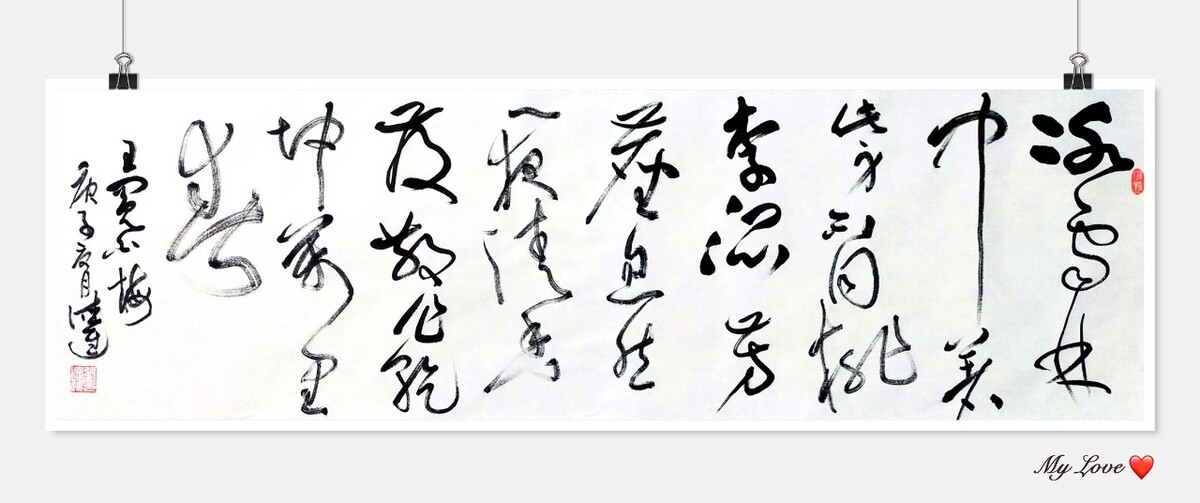 冰雪林
中著
此身不同桃
李混芳
塵忽然
一夜清香
發散作乾
坤萬里
春
王冕白梅
庚子夏月
My Love ❤️